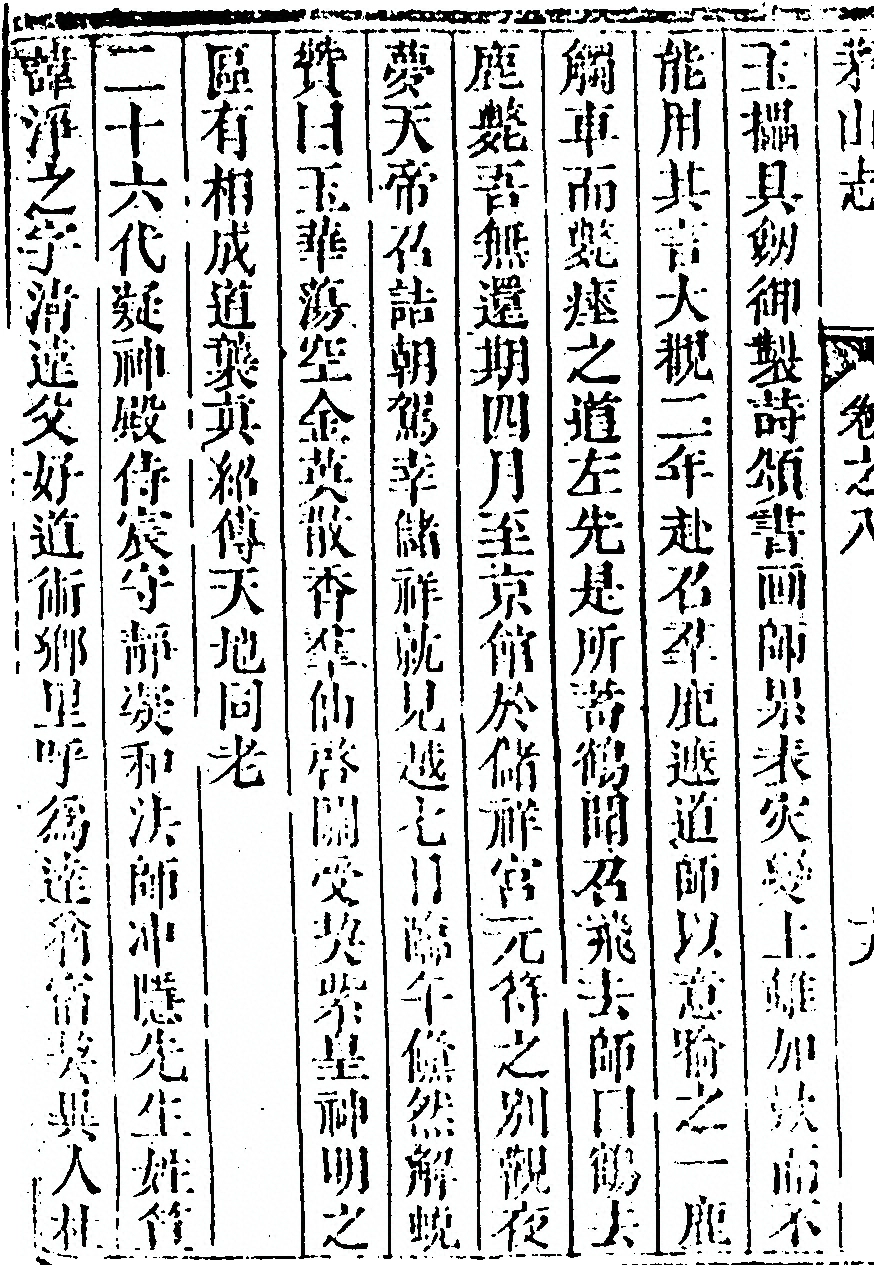 茅山志 卷之八
玉搵具劒御製詩頌書画師累表灾變上雖加歎而不
能用其言大觀二年赴召羣鹿遮道師以意喻之一鹿
觸車而斃瘞之道左先是所畜鶴聞召飛去師曰鶴去
鹿斃吾無還期四月至京館於儲祥宮元符之別觀夜
夢天帝召詰朝駕幸儲祥就見越七日臨午翛然解蛻
贊曰玉華蕩空金英散香羣仙啓關受契紫皇神明之
區有相成道襲真紹傳天地同老
二十六代凝神殿侍宸守靜凝和法師冲隱先生姓笪
諱淨之字清遠父好道術鄉里呼爲達翁宿契異人村